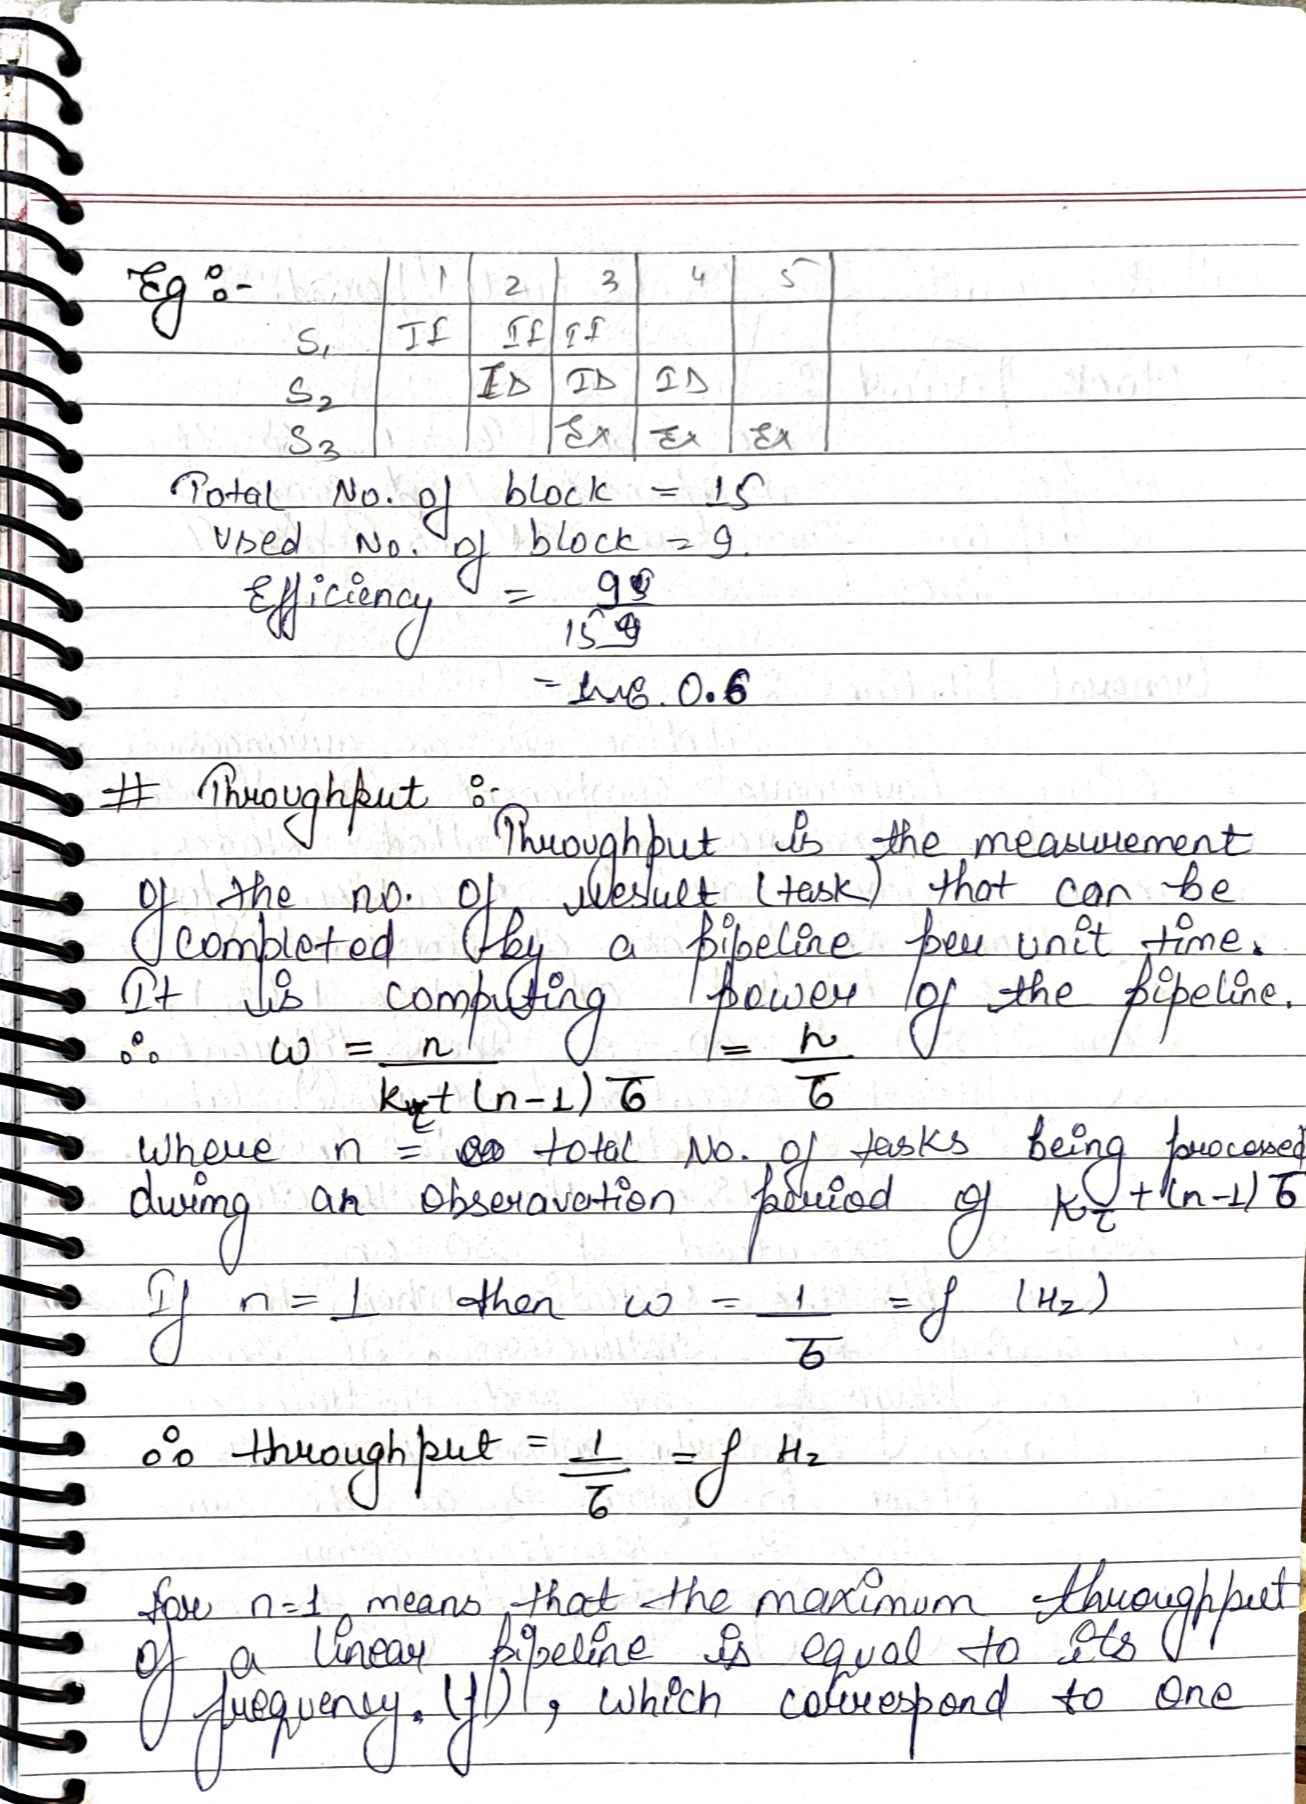 Eg :- 1 2 3 4 5
S1 If If If
S2 ID ID ID
S3 Ex Ex Ex
Total No. of block = 15
Used No. of block = 9.
Efficiency = 9
15
= 0.6
# Throughput :-
Throughput is the measurement
of the no. of result (task) that can be
completed by a pipeline per unit time.
It is computing power of the pipeline.
∴ w = n / kτ + (n-1) τ = n / τ
where n = total No. of tasks being processed
during an obseravation period of kτ + (n-1) τ
If n = 1 then w = 1/τ = f (Hz)
∴ throughput = 1/τ = f Hz
for n=1 means that the maximum throughpput
of a linear pipeline is equal to its
frequency. (f), which correspond to one